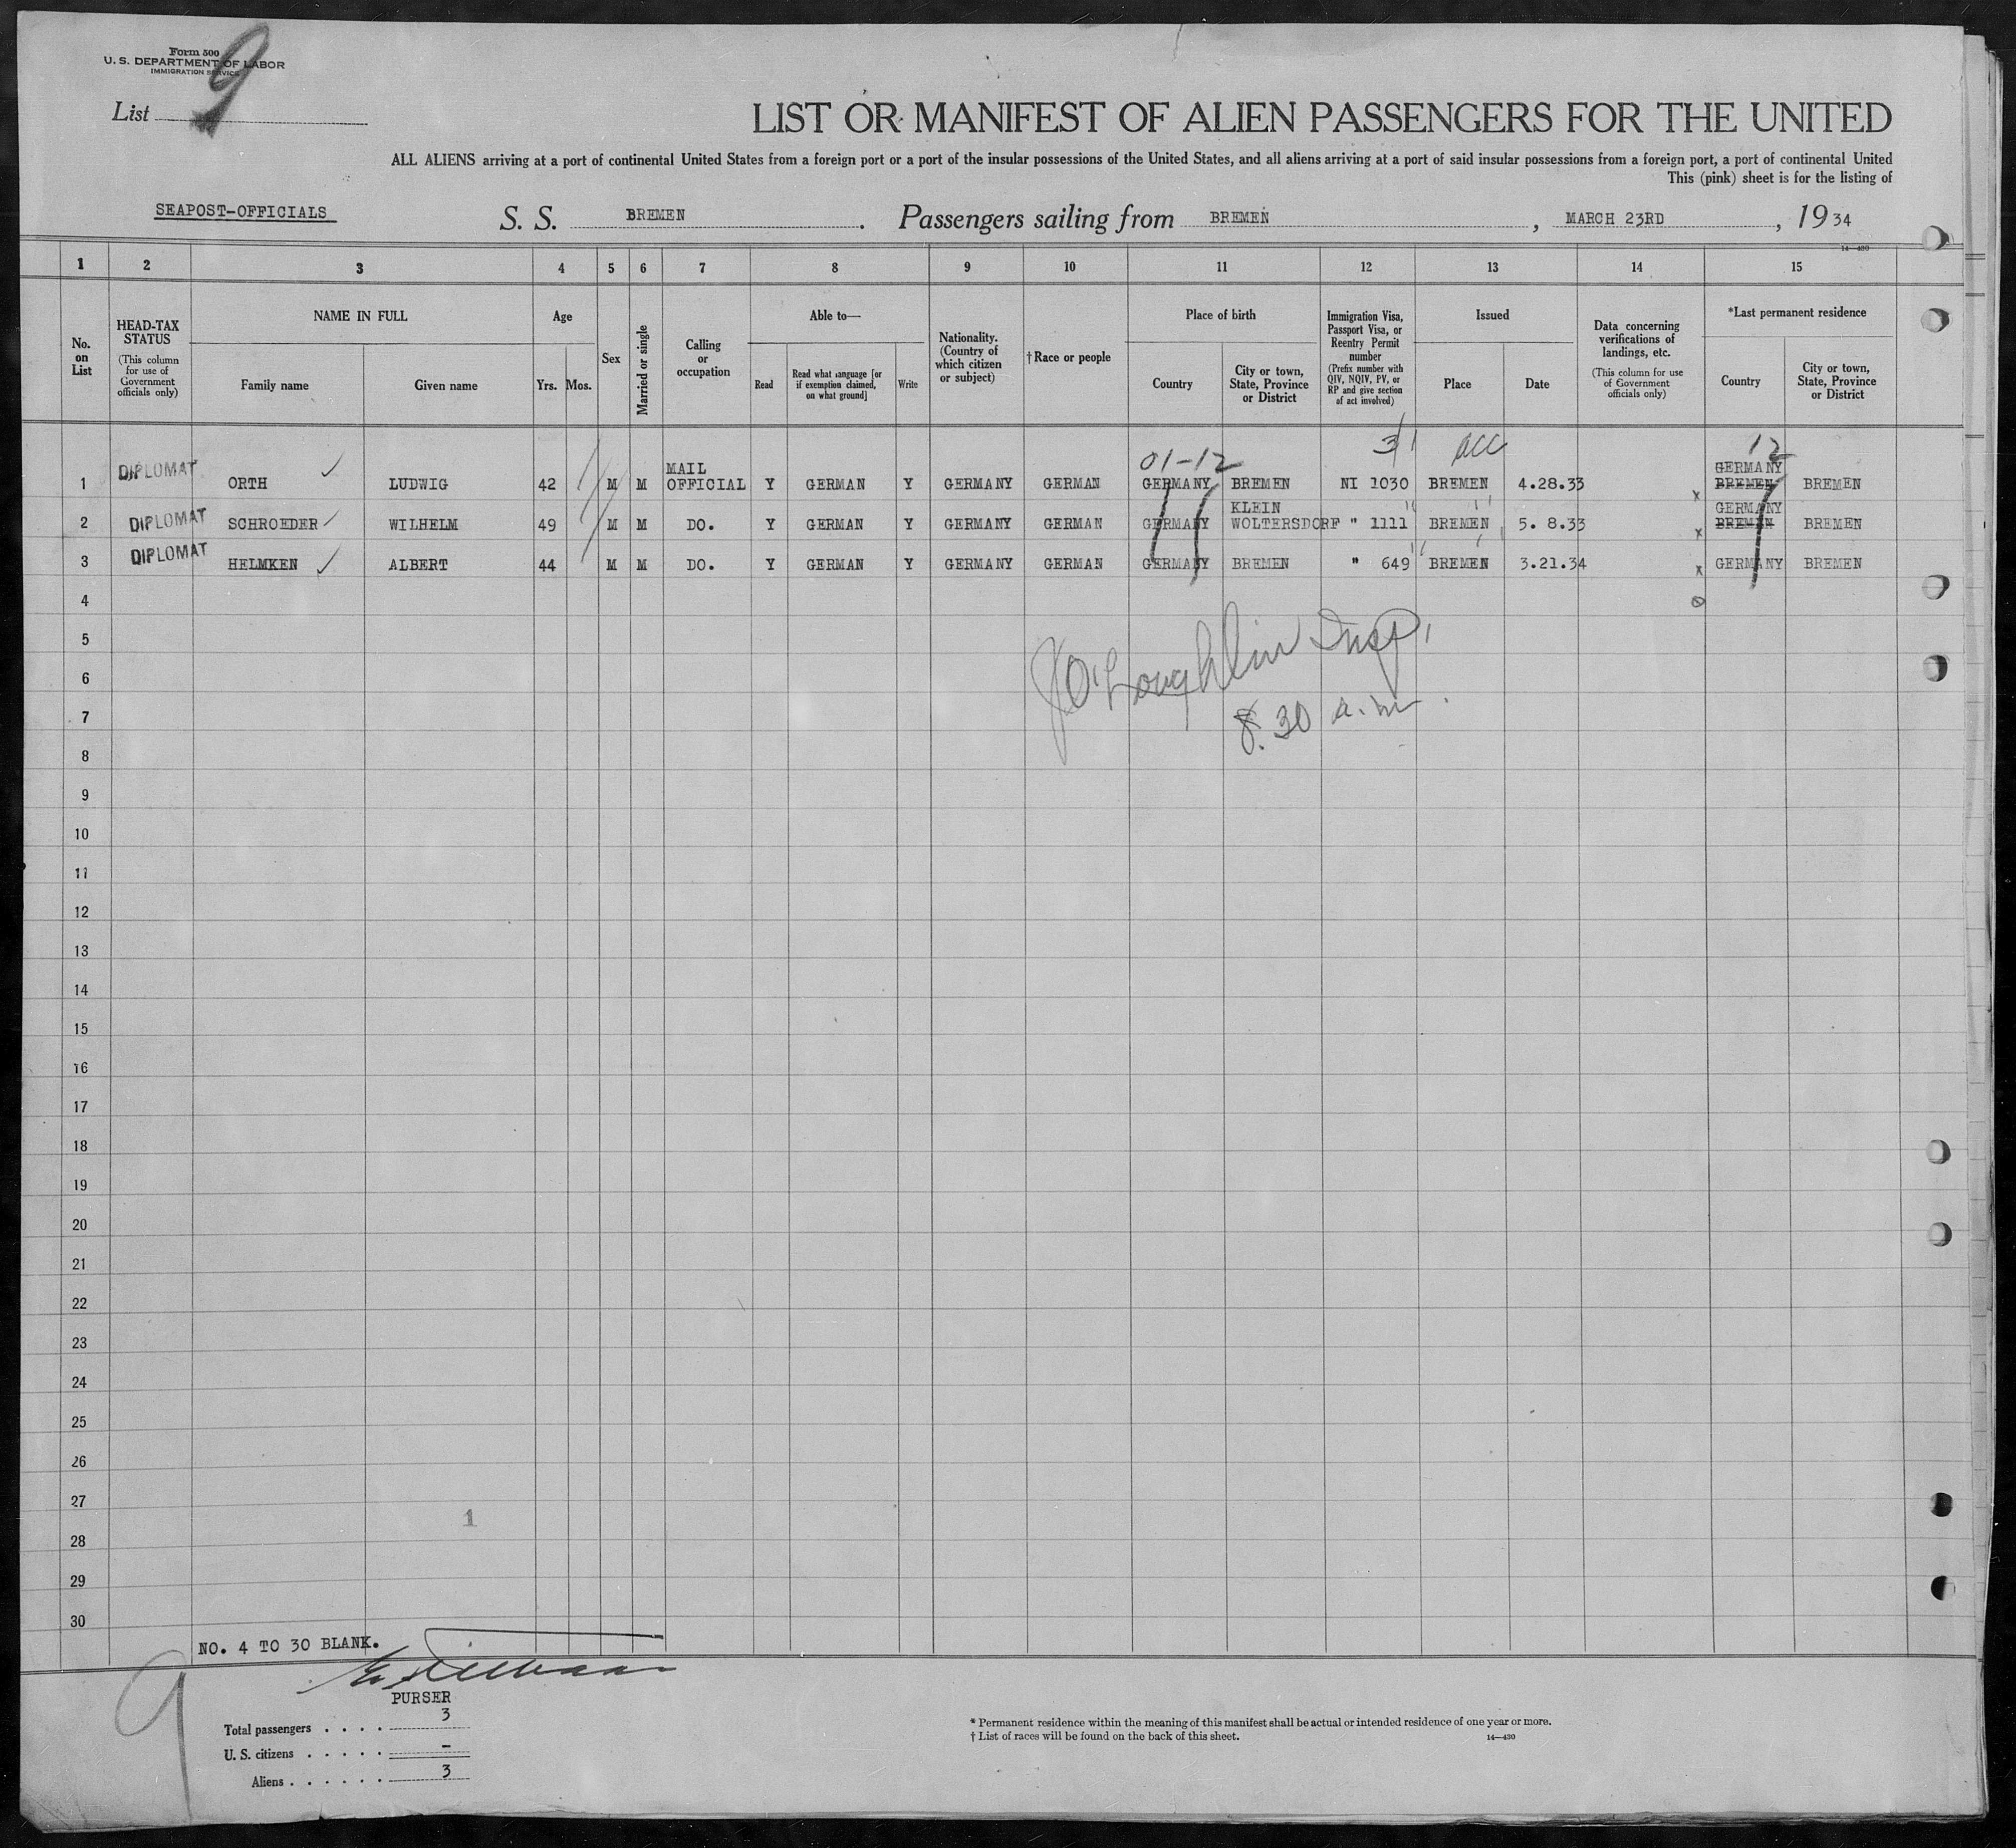 Form 500
U. S. DEPARTMENT OF LABOR
IMMIGRATION SERVICE
List 9
LIST OR MANIFEST OF ALIEN PASSENGERS FOR THE UNITED
ALL ALIENS arriving at a port of continental United States from a foreign port or a port of the insular possessions of the United States, and all aliens arriving at a port of said insular possessions from a foreign port, a port of continental United
This (pink) sheet is for the listing of
SEAPOST-OFFICIALS S. S. BREMEN. Passengers sailing from BREMEN, MARCH 23RD, 1934
14—430
1 2 3 4 5 6 7 8 9 10 11 12 13 14 15
No. on List
HEAD-TAX STATUS
(This column for use of Government officials only)
NAME IN FULL
Family name
Given name
Age
Yrs. Mos.
Sex
Married or single
Calling or occupation
Able to—
Read
Read what language [or if exemption claimed, on what ground]
Write
Nationality. (Country of which citizen or subject)
†Race or people
Place of birth
Country
City or town, State, Province or District
Immigration Visa, Passport Visa, or Reentry Permit number
(Prefix number with QIV, NQIV, PV, or RP and give section of act involved)
Issued
Place
Date
Data concerning verifications of landings, etc.
(This column for use of Government officials only)
*Last permanent residence
Country
City or town, State, Province or District
01-12 3 12
1 DIPLOMAT ORTH LUDWIG 42 M M MAIL OFFICIAL Y GERMAN Y GERMANY GERMAN GERMANY BREMEN NI 1030 BREMEN 4.28.33 GERMANY BREMEN BREMEN
2 DIPLOMAT SCHROEDER WILHELM 49 M M DO. Y GERMAN Y GERMANY GERMAN GERMANY KLEIN WOLTERSDORF " 1111 BREMEN 5. 8.33 x GERMANY BREMEN BREMEN
3 DIPLOMAT HELMKEN ALBERT 44 M M DO. Y GERMAN Y GERMANY GERMAN GERMANY BREMEN " 649 BREMEN 3.21.34 x GERMANY BREMEN
4
5
J O'Loughlin Insp.
6
7
8.30 a.m.
8
9
10
11
12
13
14
15
16
17
18
19
20
21
22
23
24
25
26
27
1
28
29
30
NO. 4 TO 30 BLANK.
9
PURSER
Total passengers . . . . 3
U. S. citizens . . . . . -
Aliens . . . . . . 3
* Permanent residence within the meaning of this manifest shall be actual or intended residence of one year or more.
† List of races will be found on the back of this sheet.
14—430